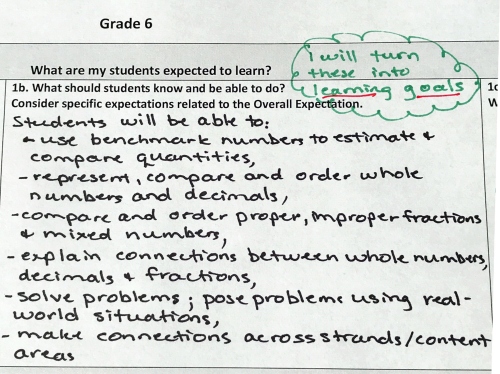 Grade 6
i will turn
these into
learning goals
What are my students expected to learn?
1b. What should students know and be able to do?
Consider specific expectations related to the Overall Expectation.
1c
W
Students will be able to:
- use benchmark numbers to estimate &
compare quantities,
- represent, compare and order whole
numbers and decimals,
- compare and order proper, improper fractions
& mixed numbers,
- explain connections between whole numbers,
decimals & fractions,
- solve problems; pose problems using real-
world situations,
- make connections across strands/content
areas